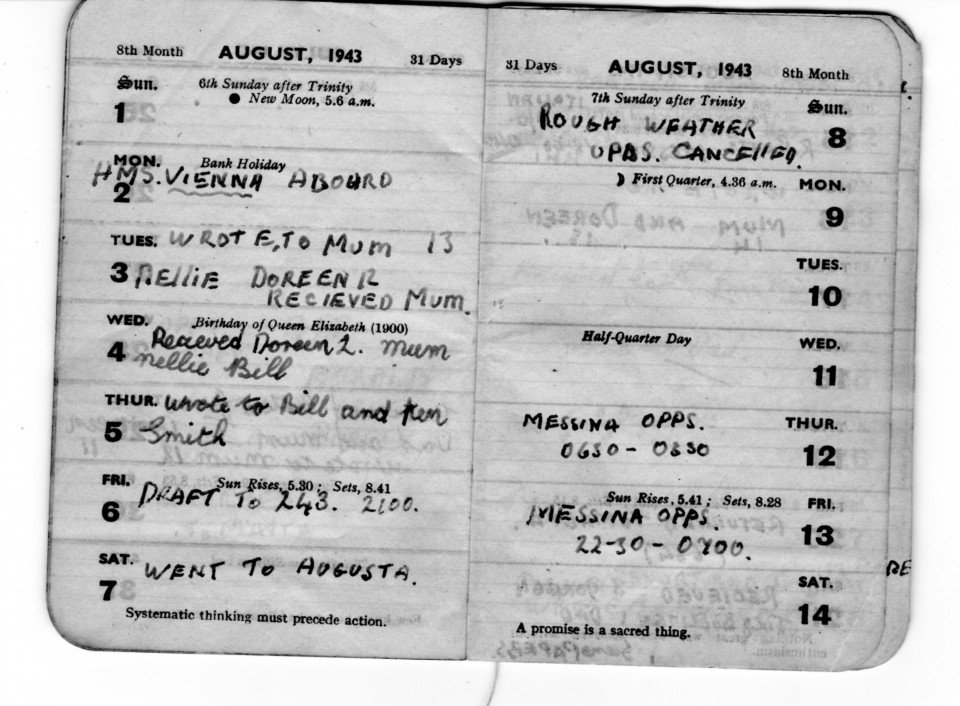 8th Month AUGUST, 1943 31 Days
Sun. 6th Sunday after Trinity
1 ● New Moon, 5.6 a.m.
MON. Bank Holiday
HMS. VIENNA ABOARD
2
TUES. WROTE, TO MUM 13
3 NELLIE DOREEN 12
RECIEVED MUM.
WED. Birthday of Queen Elizabeth (1900)
4 Recieved Doreen 2. Mum
Nellie Bill
THUR. wrote to Bill and Ken
5 Smith
FRI. Sun Rises, 5.30 ; Sets, 8.41
6 DRAFT TO 243. 2100.
SAT. WENT TO AUGUSTA.
7
Systematic thinking must precede action.
31 Days AUGUST, 1943 8th Month
7th Sunday after Trinity Sun.
ROUGH WEATHER 8
OPBS. CANCELLED.
☽ First Quarter, 4.36 a.m. MON.
9
TUES.
10
Half-Quarter Day WED.
11
MESSINA OPPS. THUR.
0630 - 0830 12
Sun Rises, 5.41 ; Sets, 8.28 FRI.
MESSINA OPPS. 13
22-30 - 0400.
SAT.
14
A promise is a sacred thing.